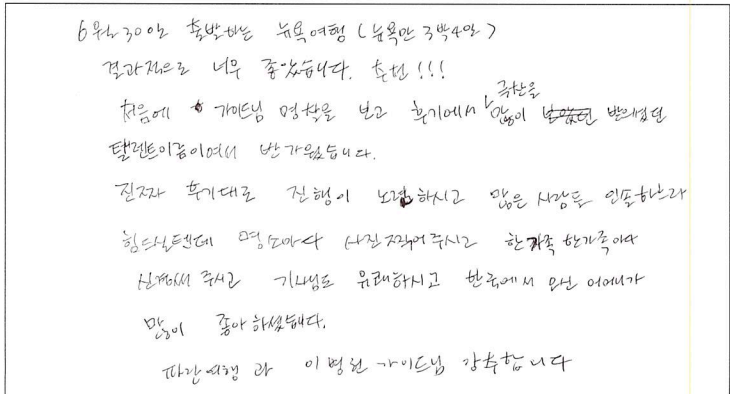 6월 30일 출발하는 뉴욕여행 (뉴욕만 3박4일)
결과적으로 너무 좋았습니다. 추천!!!
처음에 가이드님 명찰을 보고 후기에서 극찬을 많이 받으셨던
탤런트이름이여서 반가웠습니다.
진짜 후기대로 진행이 노련하시고 많은 사람들 인솔하느라
힘드실텐데 명소마다 사진 찍어주시고 한가족 한가족마다
신경써 주시고 기사님도 유쾌하시고 한국에서 오신 어머니가
많이 좋아하셨습니다.
파란여행 과 이병헌 가이드님 강추합니다